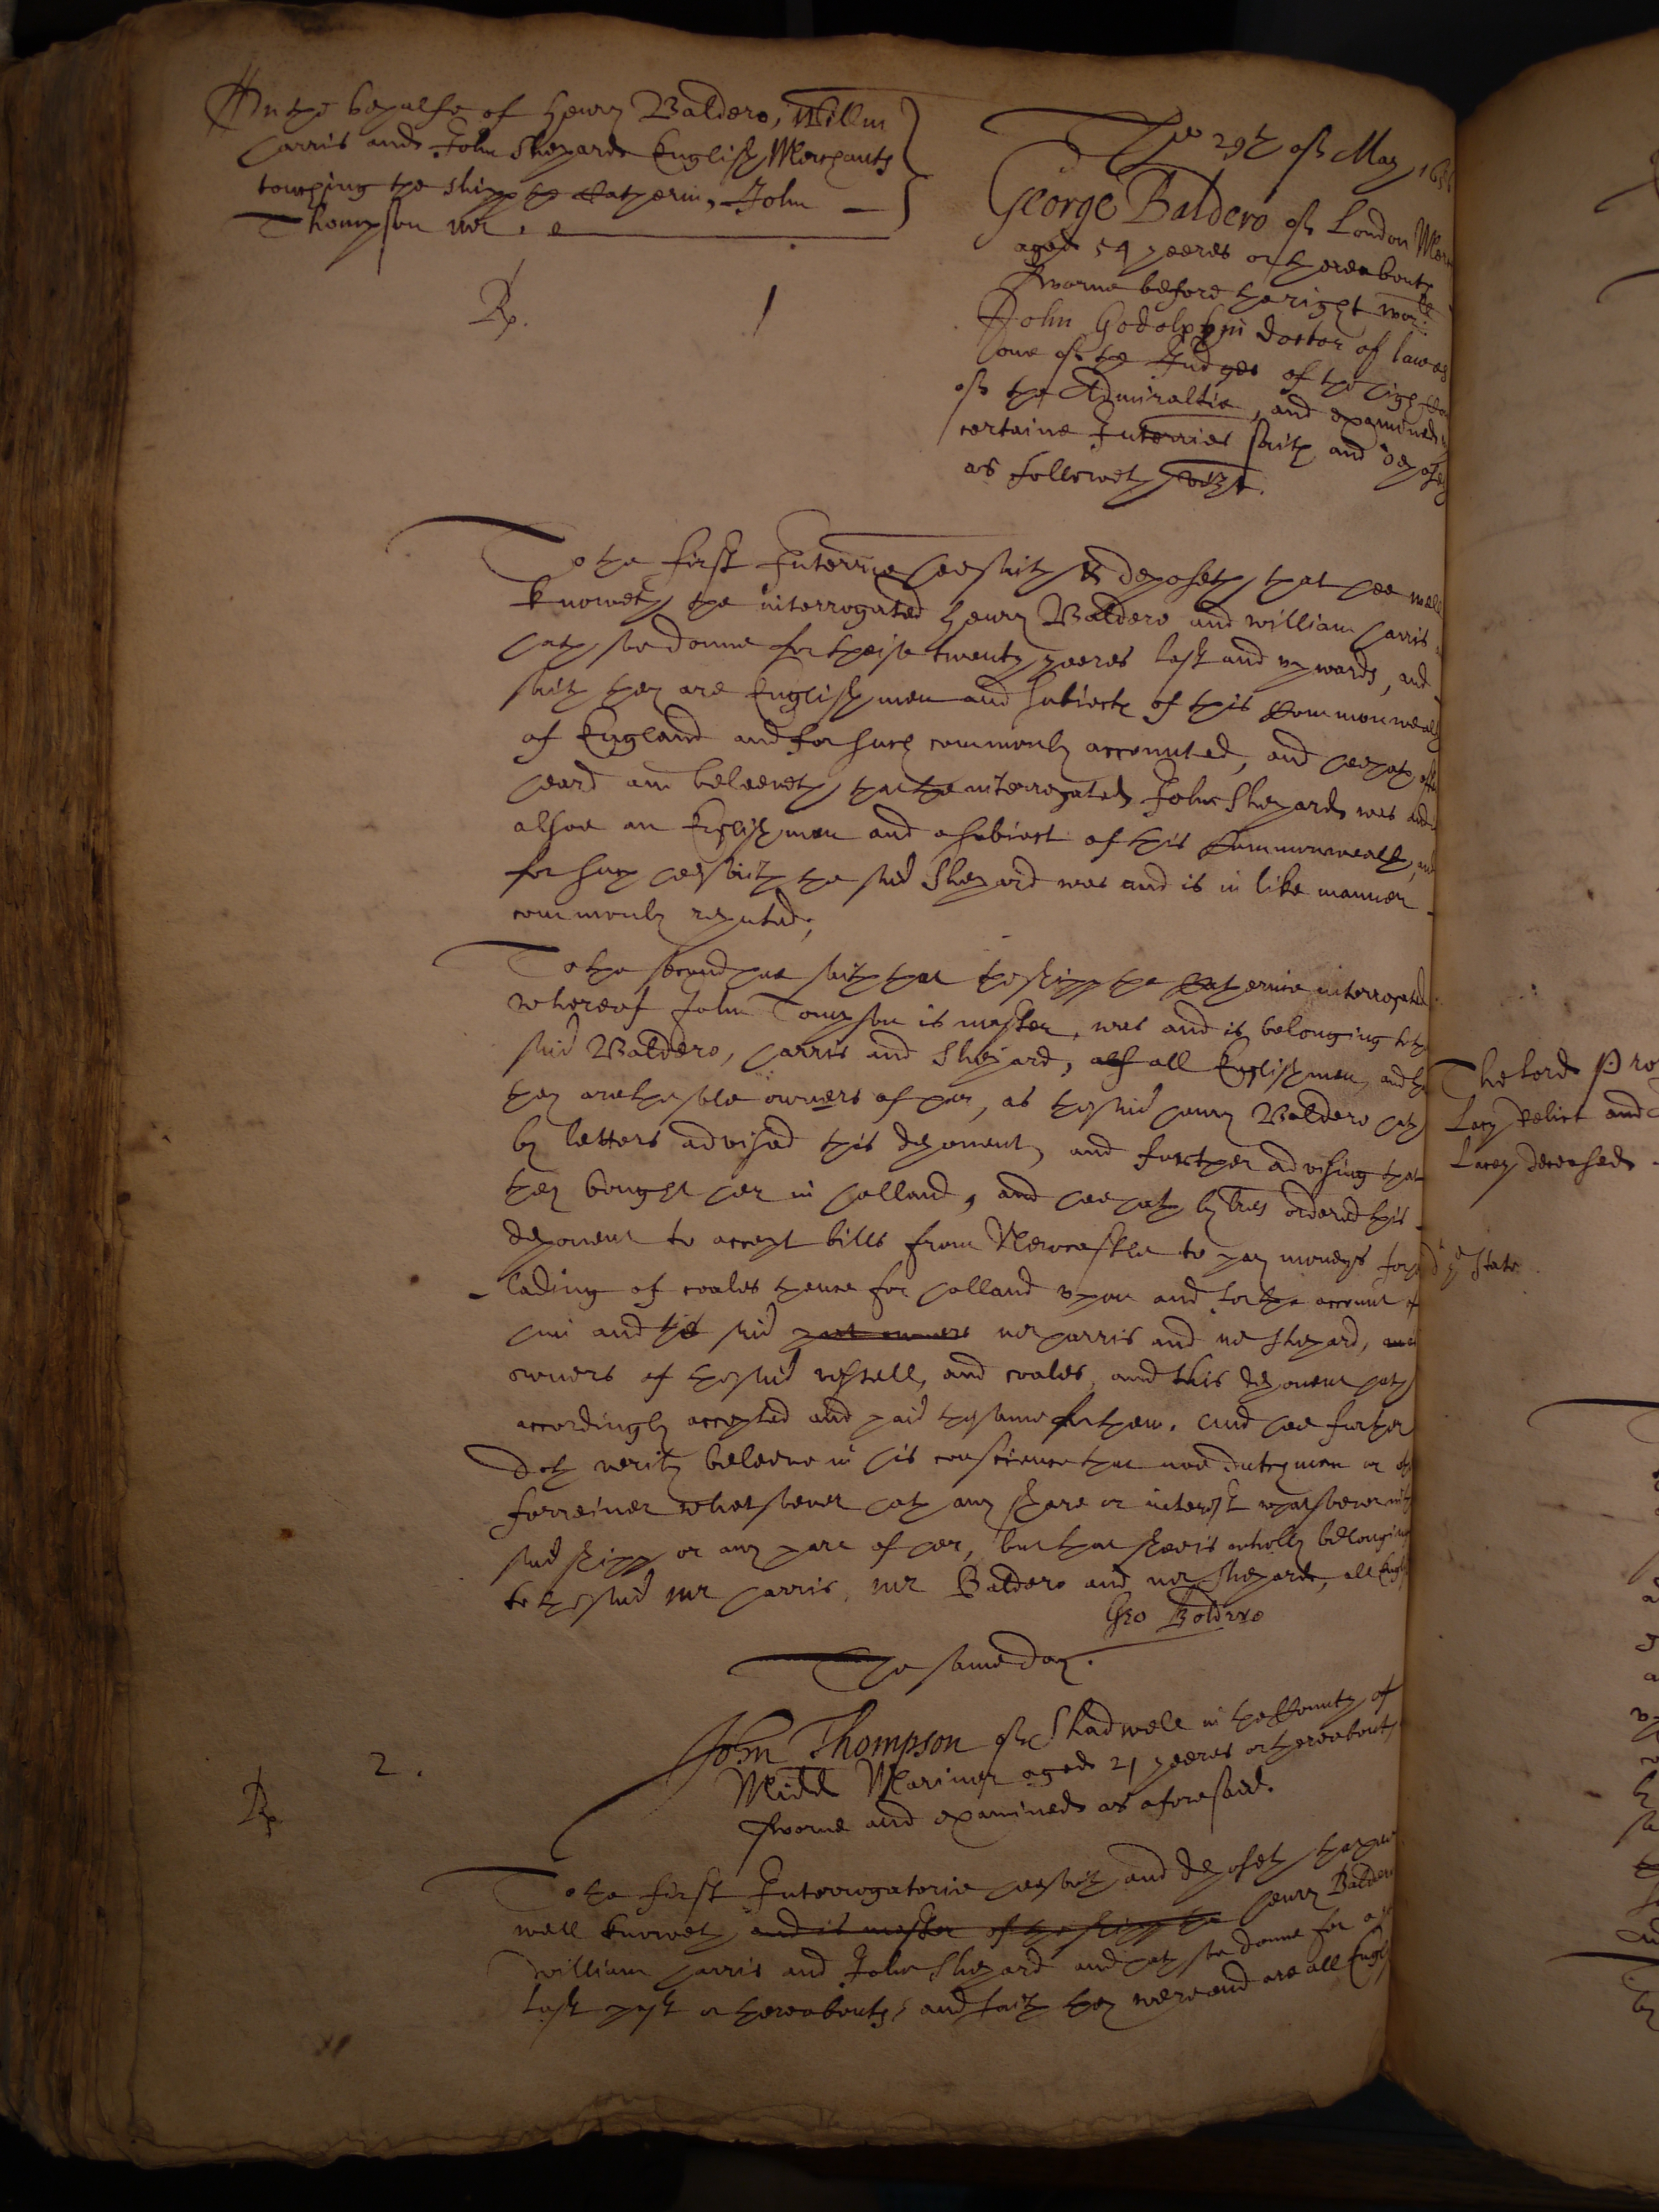 On the behalfe of Henry Baldero, Willm
Harris and John Shepard English Merchants
touching the shipp the Katherin, John
Thompson mr.
Rp.
1
The 29th of May 165
George Baldero of London Mer
aged 54 yeeres or thereabouts
sworne before the right worll:
John Godolphin doctor of lawes
one of the Judges of the high Co
of the Admiraltie, and examined
certaine Interries saith and deposeth
as followeth vizt.
To the first Interrie hee saith & deposeth that hee well
knoweth the interrogated Henry Baldero and william Harris
hath soe donne for theise twenty yeeres last and upwards, and
saith they are Englishmen and subiects of this Commonwealth
of England and for such commonly accounted, and hee hath
heard and beleeveth that the interrogated John Shepard was and
alsoe an Englishman and a subiect of this Commonwealth, and
for such hee saith the said Shepard was and is in like manner
commonly reputed,
To the second hee saith that the shipp the Katherine interrogated
whereof John Tompson is master, was and is belonging to the
said Baldero, Harris and Shepard, all Englishmen, and
they are the sole owners of her, as the said Henry Baldero hath
by letters advised this deponent, and further advising that
they bought her in Holland, and hee hath by lres ordered this
deponent to accept bills from Newcastle to pay moneys for
lading of coales thence for Holland upon and for the account of
him and the said part owners mr Harris and mr Shepard,
owners of the said vessell, and coales, and this deponent hath
accordingly accepted and paid the same for them. And hee further
doth verily beleeve in his conscience that noe dutchman or
forreiner whatsoever hath any share or interest whatsoever in the
said shipp or any part of her, but that shee is wholly belonging
to the said mr Harris, mr Baldero and mr Shepard, all English
Geo Boldero
The same day.
2.
Rp
John Thompson of Shadwell in the County of
Midd Mariner aged 21 yeeres or thereabouts
sworne and examined as aforesaid.
To the first Interrogatorie hee saith and deposeth that hee
well knoweth and is master of the shipp the Henry Baldero
William Harris and John Shepard and hath soe donne for a
last past or thereabouts, and saith they were and are all Engl
The Lord Pro
Lacy Relict and
Lacey deceased
ye State